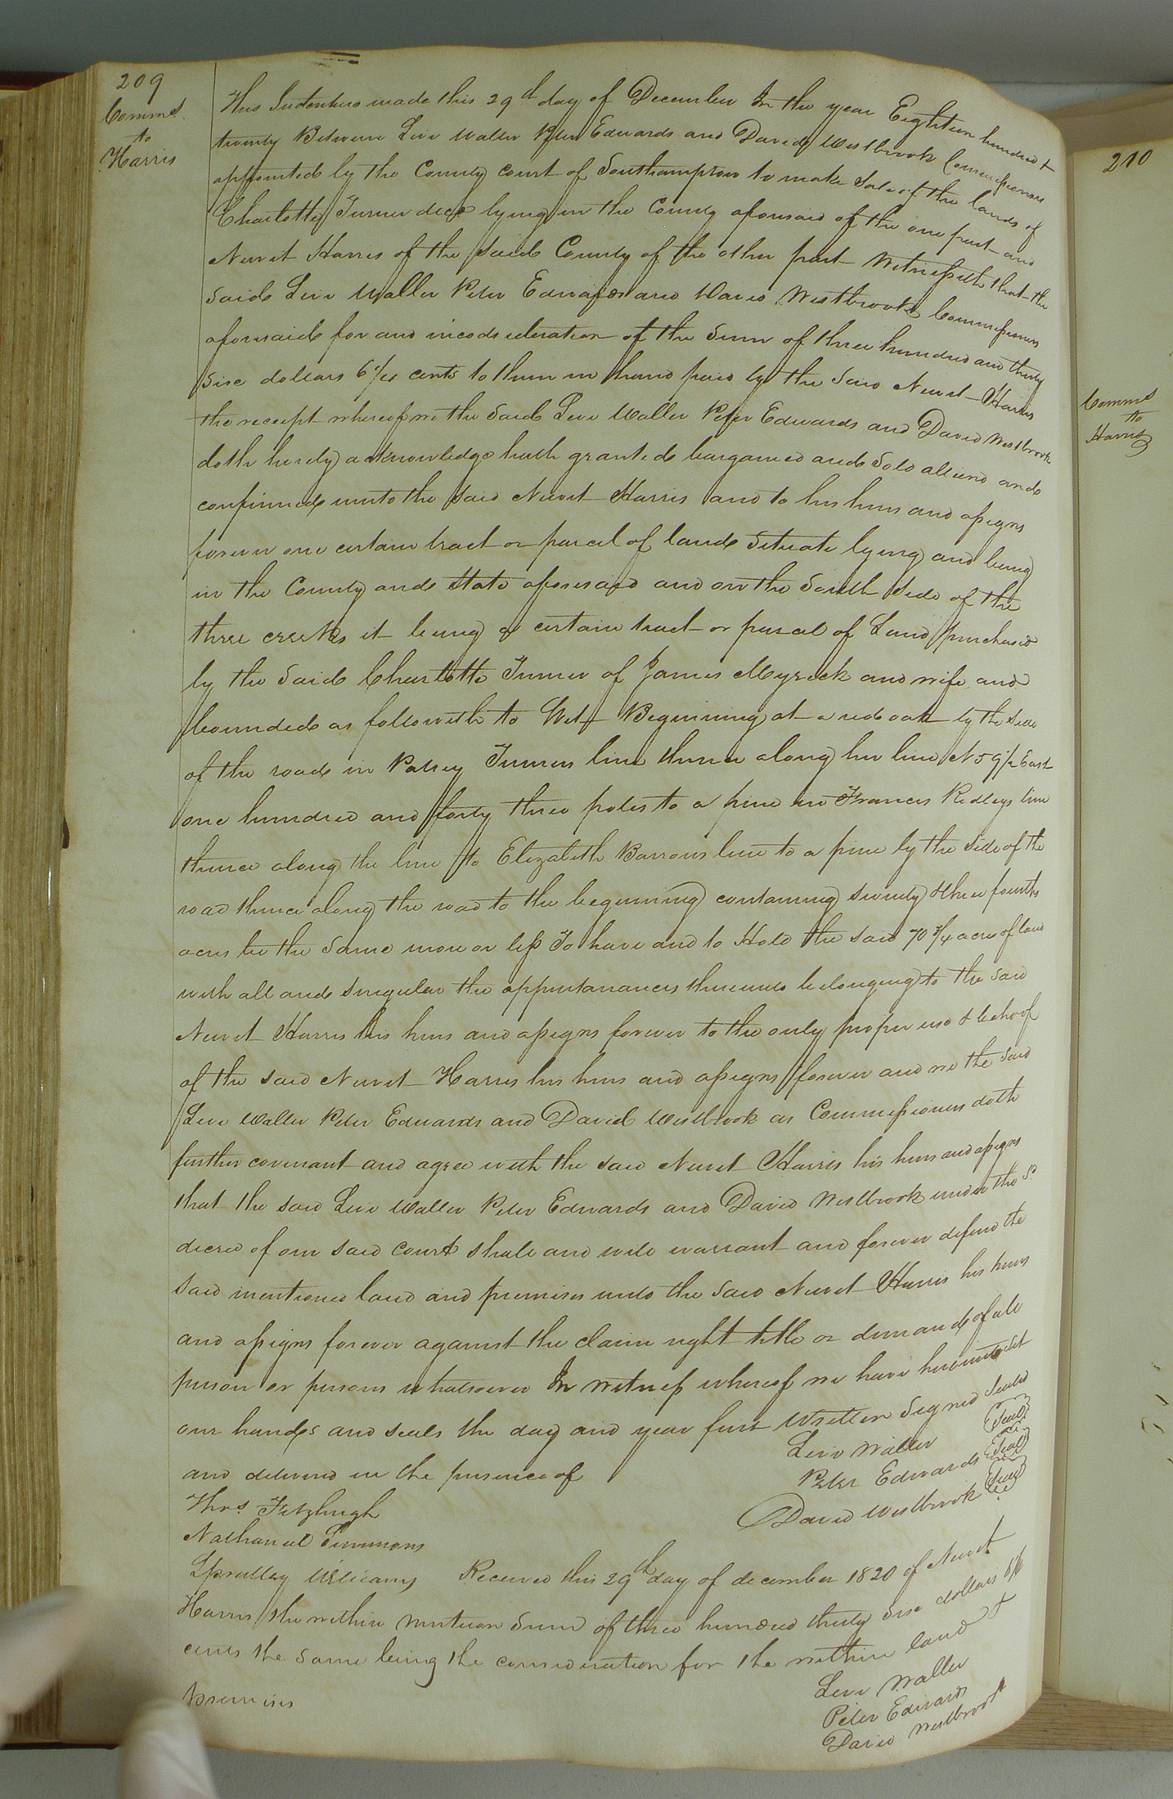 209
Comms
to
Harris
This Indenture made this 29th day of December In the year Eighteen hundred &
twenty Between Levi Waller Peter Edwards and David Westbrook Commissioners
appointed by the County court of Southampton to make Sale of the lands of
Charlotte Turner decd lying in the County aforesaid of the one part and
Newit Harris of the said County of the other part Witnesseth that the
said Levi Waller Peter Edwards and David Westbrook Commissioners
aforesaid for and in consideration of the Sum of three hundred and thirty
Six dollars 6 1/4 cents to them in hand paid by the said Newit Harris
the receipt whereof we the Said Levi Waller Peter Edwards and David Westbrook
doth hereby acknowledge hath granted bargained and Sold aliend and
confirmed unto the said Newit Harris and to his heirs and assigns
forever one certain tract or parcel of land Situate lying and being
in the County and State aforesaid and on the South Side of the
three creeks it being a certain tract or parcel of Land purchased
by the Said Charlotte Turner of James Myrick and wife and
bounded as followeth to Wit Beginning at a red oak by the side
of the road in Patsey Turners line thence along her line N 59 1/2 East
one hundred and forty three poles to a pine in Francis Ridleys line
thence along the line to Elizabeth Barrows line to a pine by the side of the
road thence along the road to the beginning containing seventy & three fourths
acres be the Same more or less To have and to Hold the said 70 3/4 acres of land
with all and singular the appurtanances thereunto belonging to the said
Newit Harris his heirs and assigns forever to the only proper use & behoof
of the said Newit Harris his heirs and assigns forever and we the said
Levi Waller Peter Edwards and David Westbrook as Commissioners doth
further covenant and agree with the said Newit Harris his heirs and assigns
that the said Levi Waller Peter Edwards and David Westbrook under the sd
decree of our said court shall and will warrant and forever defend the
said mentioned land and premises unto the said Newit Harris his heirs
and assigns forever against the claim right title or demand of all
person or persons whatsoever In witness whereof we have hereunto set
our hands and seals the day and year first Written Signed Sealed
and delivered in the presence of
Levi Waller Seal
Peter Edwards Seal
David Westbrook Seal
Thos Fitzhugh
Nathaniel Simmons
Spratley Williams Received this 29th day of december 1820 of Newit
Harris the within mention Sum of three hundred thirty six dollars 6 1/4
cents the same being the consideration for the within land &
premises
Levi Waller
Peter Edwards
David Westbrook
210
Comms
to
Harris